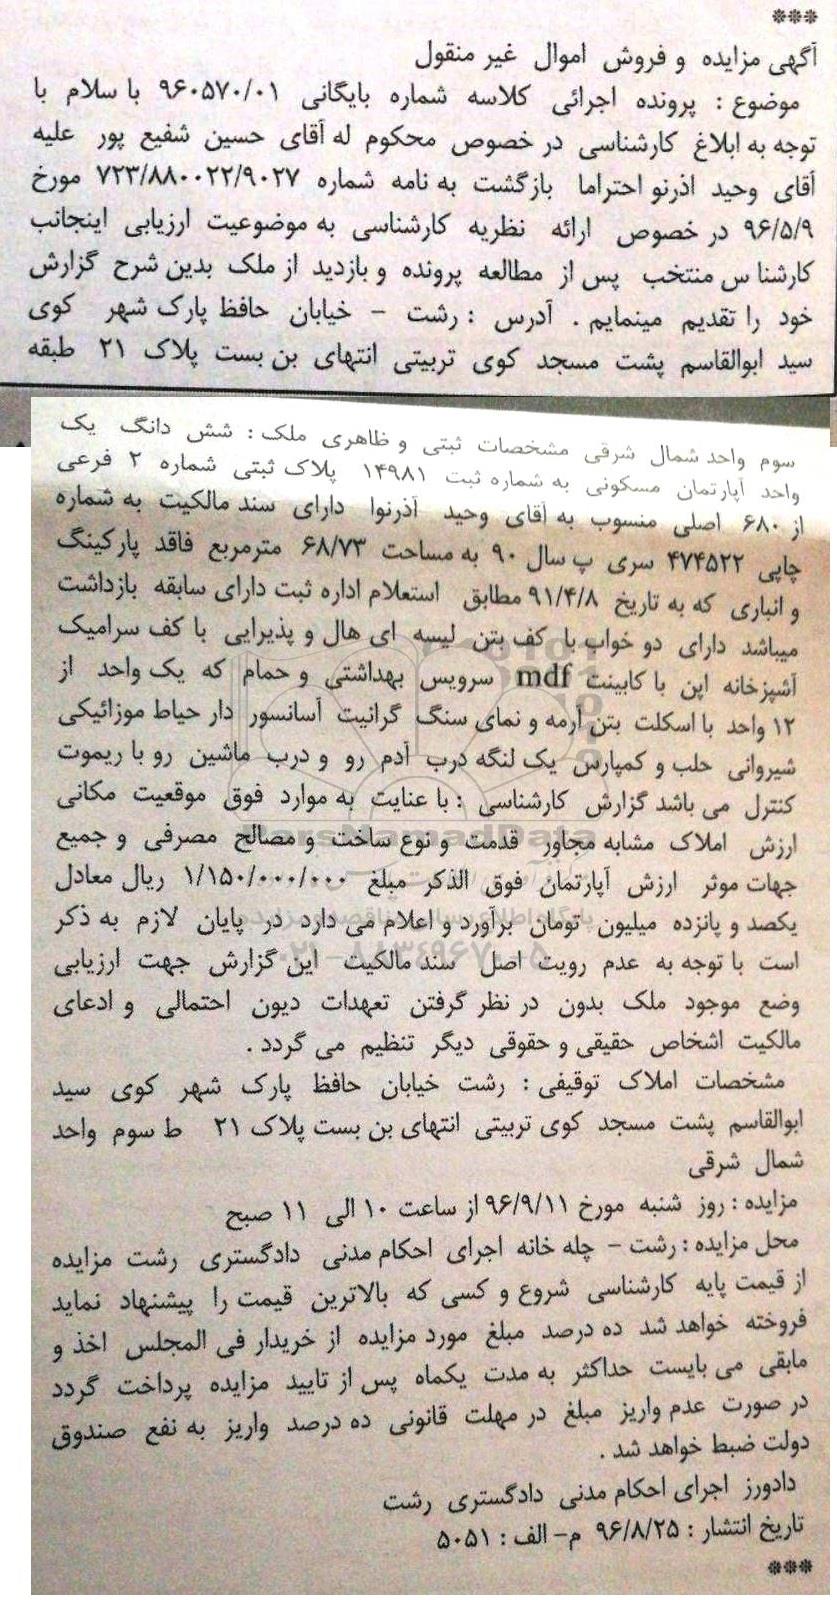 ***
آگهی مزایده و فروش اموال غیر منقول
موضوع : پرونده اجرائی کلاسه شماره بایگانی ۹۶۰۵۷۰/۰۱ با سلام با
توجه به ابلاغ کارشناسی در خصوص محکوم له آقای حسین شفیع پور علیه
آقای وحید اذرنو احتراما بازگشت به نامه شماره ۷۲۳/۸۸۰۰۲۲/۹۰۲۷ مورخ
۹۶/۵/۹ در خصوص ارائه نظریه کارشناسی به موضوعیت ارزیابی اینجانب
کارشنا س منتخب پس از مطالعه پرونده و بازدید از ملک بدین شرح گزارش
خود را تقدیم مینمایم . آدرس : رشت – خیابان حافظ پارک شهر کوی
سید ابوالقاسم پشت مسجد کوی تربیتی انتهای بن بست پلاک ۲۱ طبقه
سوم واحد شمال شرقی مشخصات ثبتی و ظاهری ملک : شش دانگ یک
واحد آپارتمان مسکونی به شماره ثبت ۱۴۹۸۱ پلاک ثبتی شماره ۲ فرعی
از ۶۸۰ اصلی منسوب به آقای وحید آذرنوا دارای سند مالکیت به شماره
چاپی ۴۷۴۵۲۲ سری پ سال ۹۰ به مساحت ۶۸/۷۳ مترمربع فاقد پارکینگ
و انباری که به تاریخ ۹۱/۴/۸ مطابق استعلام اداره ثبت دارای سابقه بازداشت
میباشد دارای دو خواب با کف بتن لیسه ای هال و پذیرایی با کف سرامیک
آشپزخانه اپن با کابینت mdf سرویس بهداشتی و حمام که یک واحد از
۱۲ واحد با اسکلت بتن آرمه و نمای سنگ گرانیت آسانسور دار حیاط موزائیکی
شیروانی حلب و کمپارس یک لنگه درب آدم رو و درب ماشین رو با ریموت
کنترل می باشد گزارش کارشناسی : با عنایت به موارد فوق موقعیت مکانی
ارزش املاک مشابه مجاور قدمت و نوع ساخت و مصالح مصرفی و جمیع
جهات موثر ارزش آپارتمان فوق الذکر مبلغ ۱/۱۵۰/۰۰۰/۰۰۰ ریال معادل
یکصد و پانزده میلیون تومان برآورد و اعلام می دارد در پایان لازم به ذکر
است با توجه به عدم رویت اصل سند مالکیت این گزارش جهت ارزیابی
وضع موجود ملک بدون در نظر گرفتن تعهدات دیون احتمالی و ادعای
مالکیت اشخاص حقیقی و حقوقی دیگر تنظیم می گردد .
مشخصات املاک توقیفی : رشت خیابان حافظ پارک شهر کوی سید
ابوالقاسم پشت مسجد کوی تربیتی انتهای بن بست پلاک ۲۱ ط سوم واحد
شمال شرقی
مزایده : روز شنبه مورخ ۹۶/۹/۱۱ از ساعت ۱۰ الی ۱۱ صبح
محل مزایده : رشت – چله خانه اجرای احکام مدنی دادگستری رشت مزایده
از قیمت پایه کارشناسی شروع و کسی که بالاترین قیمت را پیشنهاد نماید
فروخته خواهد شد ده درصد مبلغ مورد مزایده از خریدار فی المجلس اخذ و
مابقی می بایست حداکثر به مدت یکماه پس از تایید مزایده پرداخت گردد
در صورت عدم واریز مبلغ در مهلت قانونی ده درصد واریز به نفع صندوق
دولت ضبط خواهد شد .
دادورز اجرای احکام مدنی دادگستری رشت
تاریخ انتشار : ۹۶/۸/۲۵ م– الف : ۵۰۵۱
***